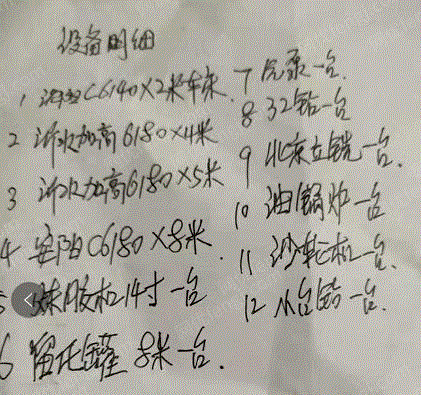 设备明细
1 沈阳C6140×2米车床
2 沂水加高6180×4米
3 沂水加高6180×5米
4 安阳C6180×8米
5 炼胶机14寸一台
6 留化罐 8米一台.
7 气泵一台.
8 32钻一台
9 北京立铣一台.
10 油锅炉一台
11 沙轮机一台.
12 小台钻一台.